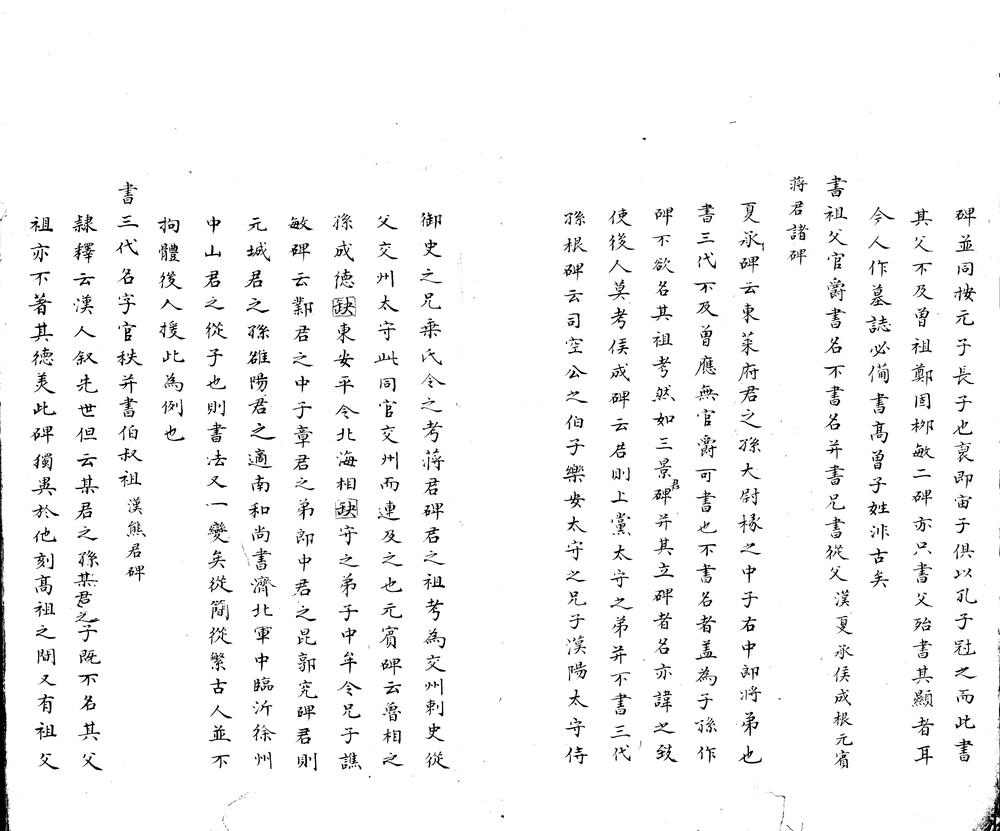 碑並同按元子長子也裒即宙子俱以孔子冠之而此書
其父不及曾祖鄭固栁敏二碑亦只書父殆書其顯者耳
今人作墓誌必僃書高曾子姓泮古矣
書祖父官爵書名不書名并書兄書從父漢夏承侯成根元賓
蒋君諸碑
夏承碑云東萊府君之孫大尉掾之中子右中郎將弟也
書三代不及曾應無官爵可書也不書名者盖為子孫作
碑不欲名其祖考然如三景君碑并其立碑者名亦諱之致
使後人莫考侯成碑云君則上黨太守之弟并不書三代
孫根碑云司空公之伯子樂安太守之兄子漢陽太守侍
御史之兄乘氏令之考蒋君碑君之祖考為交州刺史從
父交州太守此同官交州而連及之也元賓碑云魯相之
孫成德缺東安平令北海相缺守之弟子中牟令兄子譙
敏碑云鄴君之中子章君之弟郎中君之昆郭究碑君則
元城君之孫雒陽君之適南和尚書濟北軍中臨沂徐州
中山君之從子也則書法又一變矣從簡從繁古人並不
拘體後人援此為例也
書三代名字官秩并書伯叔祖漢熊君碑
隸釋云漢人叙先世但云某君之孫某君之子既不名其父
祖亦不著其德美此碑獨異於他刻髙祖之閒又有祖父